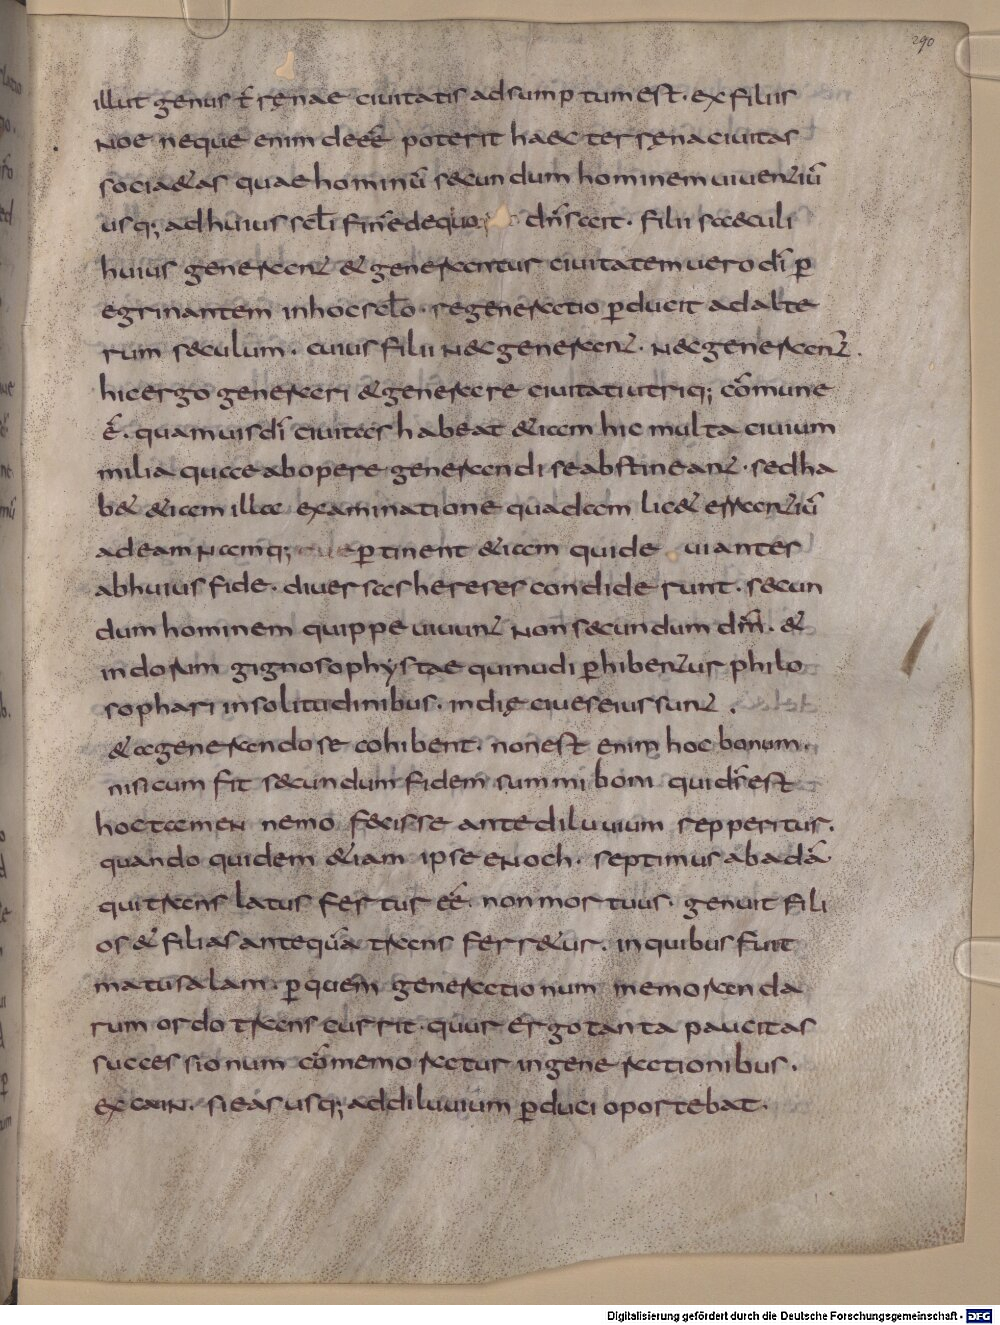 290
illut genus tr̄ ręnae ciuitatis adsumptum est · ex filiis
Noe neque enim deeē poterit haec terręna ciuitas
sociaetas quae hominū secundum hominem uiuentiū
usq; ad huius scl̄i finē de quo dn̄s ait · filii saeculi
huius generant & generantur ciuitatem uero dī p̄
egrinantem in hoc scl̄o · regeneratio p̄ducit ad alte
rum saeculum · cuius filii nec generant · nec generant̄ ·
hic ergo generari & generare ciuitati utriq; cōmune
ē · quamuis dī ciuitas habeat &iam hic multa ciuium
milia quae ab opere generandi se abstineant · sed ha
b& &iam illa ex aminatione quadam lic& errantiū
ad eam namq; p̄tinent &iam qui de uiantes
ab huius fide · diuersas hereses condiderunt · secun
dum hominem quippe uiuunt non secundum dm̄ · &
indorum gignosophystae qui nudi p̄hibentur philo
sophari in solitudinibus · indię ciues eius sunt ·
& a generando se cohibent · non est enim hoc bonum ·
nisi cum fit secundum fidem summi boni qui dī est
hoc tamen nemo fecisse ante diluuium repperitus ·
quando quidem &iam ipse enoch · septimus ab adā
qui translatus fertur eē · non mortuus · genuit fili
os & filias antequā transferretur · in quibus fuit
matusalam · p̄ quem generationum memoranda
rum ordo transcurrit · quur ergo tanta paucitas
successionum cōmemoratur in generationibus ·
ex cain · si eas usq; ad diluuium p̄duci oportebat ·
Digitalisierung gefördert durch die Deutsche Forschungsgemeinschaft - DFG